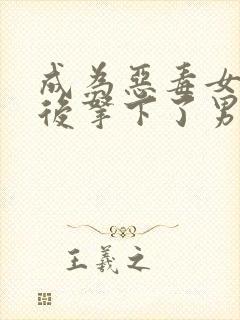 成為惡毒女
後拏下了男
王義之